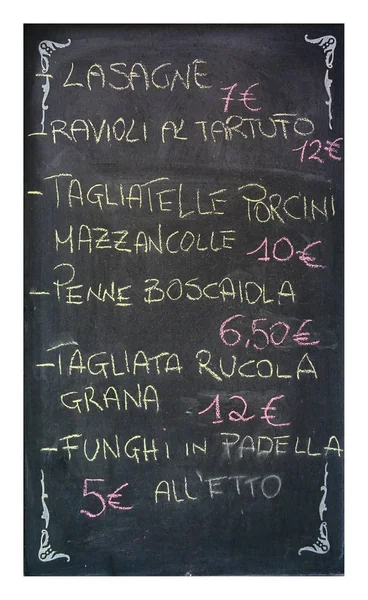 - LASAGNE
7€
- RAVIOLI AL TARTUTO
12€
- TAGLIATELLE PORCINI
MAZZANCOLLE 10€
- PENNE BOSCAIOLA
6,50€
- TAGLIATA RUCOLA
GRANA 12€
- FUNGHI IN PADELLA
5€ ALL'ETTO